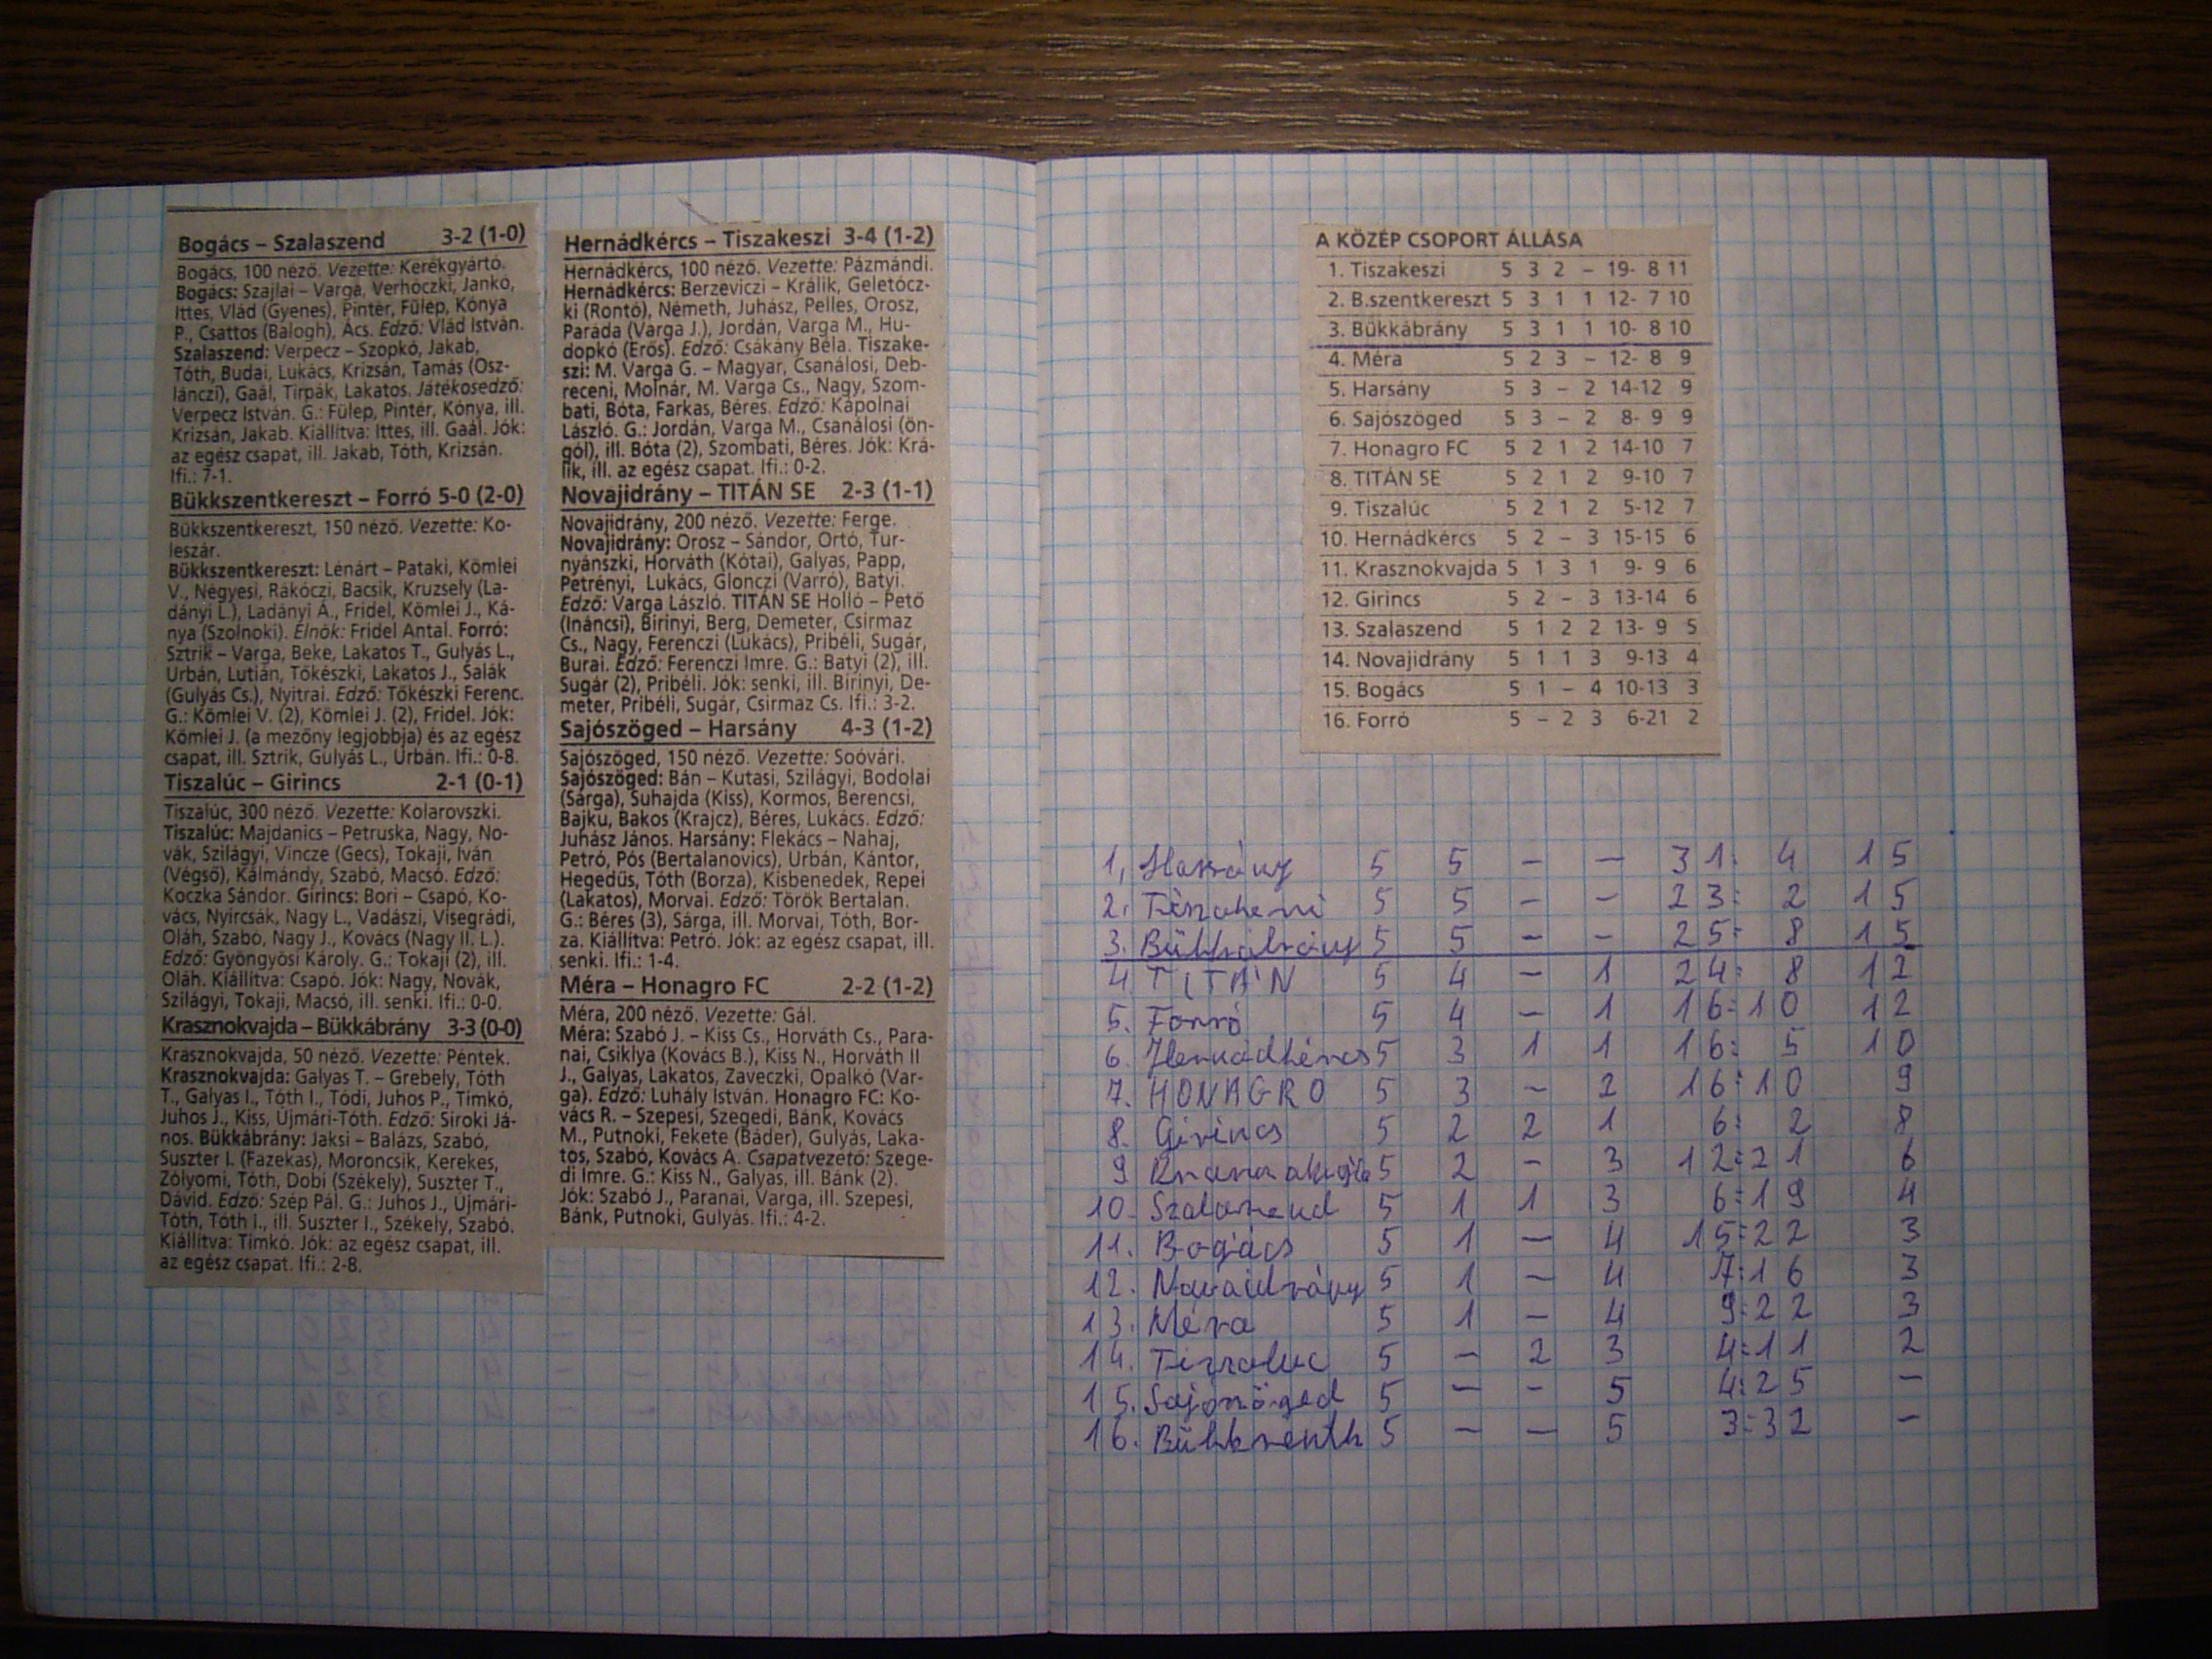 Bogács – Szalaszend 3-2 (1-0)
Bogács, 100 néző. Vezette: Kerékgyártó.
Bogács: Szajlai – Varga, Verhóczki, Jankó,
Ittes, Vlád (Gyenes), Pintér, Fülep, Kónya
P., Csattos (Balogh), Ács. Edző: Vlád István.
Szalaszend: Verpecz – Szopkó, Jakab,
Tóth, Budai, Lukács, Krizsán, Tamás (Osz-
lánczi), Gaál, Tirpák, Lakatos. Játékosedző:
Verpecz István. G.: Fülep, Pintér, Kónya, ill.
Krizsán, Jakab. Kiállítva: Ittes, ill. Gaál. Jók:
az egész csapat, ill. Jakab, Tóth, Krizsán.
Ifi.: 7-1.
Bükkszentkereszt – Forró 5-0 (2-0)
Bükkszentkereszt, 150 néző. Vezette: Ko-
leszár.
Bükkszentkereszt: Lénárt – Pataki, Kömlei
V., Négyesi, Rákóczi, Bacsik, Kruzsely (La-
dányi L.), Ladányi A., Fridel, Kömlei J., Ká-
nya (Szolnoki). Elnök: Fridel Antal. Forró:
Sztrik – Varga, Beke, Lakatos T., Gulyás L.,
Urbán, Lutián, Tőkészki, Lakatos J., Salák
(Gulyás Cs.), Nyitrai. Edző: Tőkészki Ferenc.
G.: Kömlei V. (2), Kömlei J. (2), Fridel. Jók:
Kömlei J. (a mezőny legjobbja) és az egész
csapat, ill. Sztrik, Gulyás L., Urbán. Ifi.: 0-8.
Tiszalúc – Girincs 2-1 (0-1)
Tiszalúc, 300 néző. Vezette: Kolarovszki.
Tiszalúc: Majdanics – Petruska, Nagy, No-
vák, Szilágyi, Vincze (Gecs), Tokaji, Iván
(Végső), Kálmándy, Szabó, Macsó. Edző:
Koczka Sándor. Girincs: Bori – Csapó, Ko-
vács, Nyircsák, Nagy L., Vadászi, Visegrádi,
Oláh, Szabó, Nagy J., Kovács (Nagy II. L.).
Edző: Gyöngyösi Károly. G.: Tokaji (2), ill.
Oláh. Kiállítva: Csapó. Jók: Nagy, Novák,
Szilágyi, Tokaji, Macsó, ill. senki. Ifi.: 0-0.
Krasznokvajda – Bükkábrány 3-3 (0-0)
Krasznokvajda, 50 néző. Vezette: Péntek.
Krasznokvajda: Galyas T. – Grebely, Tóth
T., Galyas I., Tóth I., Tódi, Juhos P., Timkó,
Juhos J., Kiss, Újmári-Tóth. Edző: Siroki Já-
nos. Bükkábrány: Jaksi – Balázs, Szabó,
Suszter I. (Fazekas), Moroncsik, Kerekes,
Zólyomi, Tóth, Dobi (Székely), Suszter T.,
Dávid. Edző: Szép Pál. G.: Juhos J., Újmári-
Tóth, Tóth I., ill. Suszter I., Székely, Szabó.
Kiállítva: Timkó. Jók: az egész csapat, ill.
az egész csapat. Ifi.: 2-8.
Hernádkércs – Tiszakeszi 3-4 (1-2)
Hernádkércs, 100 néző. Vezette: Pázmándi.
Hernádkércs: Berzeviczi – Králik, Geletócz-
ki (Rontó), Németh, Juhász, Pelles, Orosz,
Paráda (Varga J.), Jordán, Varga M., Hu-
dopkó (Erős). Edző: Csákány Béla. Tiszake-
szi: M. Varga G. – Magyar, Csanálosi, Deb-
receni, Molnár, M. Varga Cs., Nagy, Szom-
bati, Bóta, Farkas, Béres. Edző: Kápolnai
László. G.: Jordán, Varga M., Csanálosi (ön-
gól), ill. Bóta (2), Szombati, Béres. Jók: Krá-
lik, ill. az egész csapat. Ifi.: 0-2.
Novajidrány – TITÁN SE 2-3 (1-1)
Novajidrány, 200 néző. Vezette: Ferge.
Novajidrány: Orosz – Sándor, Ortó, Tur-
nyánszki, Horváth (Kótai), Galyas, Papp,
Petrényi, Lukács, Glonczi (Varró), Batyi.
Edző: Varga László. TITÁN SE Holló – Pető
(Ináncsi), Birinyi, Berg, Demeter, Csirmaz
Cs., Nagy, Ferenczi (Lukács), Pribéli, Sugár,
Burai. Edző: Ferenczi Imre. G.: Batyi (2), ill.
Sugár (2), Pribéli. Jók: senki, ill. Birinyi, De-
meter, Pribéli, Sugár, Csirmaz Cs. Ifi.: 3-2.
Sajószöged – Harsány 4-3 (1-2)
Sajószöged, 150 néző. Vezette: Soóvári.
Sajószöged: Bán – Kutasi, Szilágyi, Bodolai
(Sárga), Suhajda (Kiss), Kormos, Berencsi,
Bajku, Bakos (Krajcz), Béres, Lukács. Edző:
Juhász János. Harsány: Flekács – Nahaj,
Petró, Pós (Bertalanovics), Urbán, Kántor,
Hegedűs, Tóth (Borza), Kisbenedek, Repei
(Lakatos), Morvai. Edző: Török Bertalan.
G.: Béres (3), Sárga, ill. Morvai, Tóth, Bor-
za. Kiállítva: Petró. Jók: az egész csapat, ill.
senki. Ifi.: 1-4.
Méra – Honagro FC 2-2 (1-2)
Méra, 200 néző. Vezette: Gál.
Méra: Szabó J. – Kiss Cs., Horváth Cs., Para-
nai, Csiklya (Kovács B.), Kiss N., Horváth II
J., Galyas, Lakatos, Zaveczki, Opalkó (Var-
ga). Edző: Luhály István. Honagro FC: Ko-
vács R. – Szepesi, Szegedi, Bánk, Kovács
M., Putnoki, Fekete (Báder), Gulyás, Laka-
tos, Szabó, Kovács A. Csapatvezető: Szege-
di Imre. G.: Kiss N., Galyas, ill. Bánk (2).
Jók: Szabó J., Paranai, Varga, ill. Szepesi,
Bánk, Putnoki, Gulyás. Ifi.: 4-2.
A KÖZÉP CSOPORT ÁLLÁSA
1. Tiszakeszi 5 3 2 – 19- 8 11
2. B.szentkereszt 5 3 1 1 12- 7 10
3. Bükkábrány 5 3 1 1 10- 8 10
4. Méra 5 2 3 – 12- 8 9
5. Harsány 5 3 – 2 14-12 9
6. Sajószöged 5 3 – 2 8- 9 9
7. Honagro FC 5 2 1 2 14-10 7
8. TITÁN SE 5 2 1 2 9-10 7
9. Tiszalúc 5 2 1 2 5-12 7
10. Hernádkércs 5 2 – 3 15-15 6
11. Krasznokvajda 5 1 3 1 9- 9 6
12. Girincs 5 2 – 3 13-14 6
13. Szalaszend 5 1 2 2 13- 9 5
14. Novajidrány 5 1 1 3 9-13 4
15. Bogács 5 1 – 4 10-13 3
16. Forró 5 – 2 3 6-21 2
1, Harsány 5 5 – – 31: 4 15
2. Tiszakeszi 5 5 – – 23: 2 15
3. Bükkábrány 5 5 – – 25: 8 15
4 TITÁN 5 4 – 1 24: 8 12
5. Forró 5 4 – 1 16:10 12
6. Hernádkércs 5 3 1 1 16: 5 10
7. HONAGRO 5 3 – 2 16:10 9
8. Girincs 5 2 2 1 6: 2 8
9 5 2 – 3 12:21 6
10. Szalaszend 5 1 1 3 6:19 4
11. Bogács 5 1 – 4 15:22 3
12. Novaidrány 5 1 – 4 7:16 3
13. Méra 5 1 – 4 9:22 3
14. Tiszaluc 5 – 2 3 4:11 2
15. Sajószöged 5 – – 5 4:25 –
16. Bükkszentk 5 – – 5 3:32 –